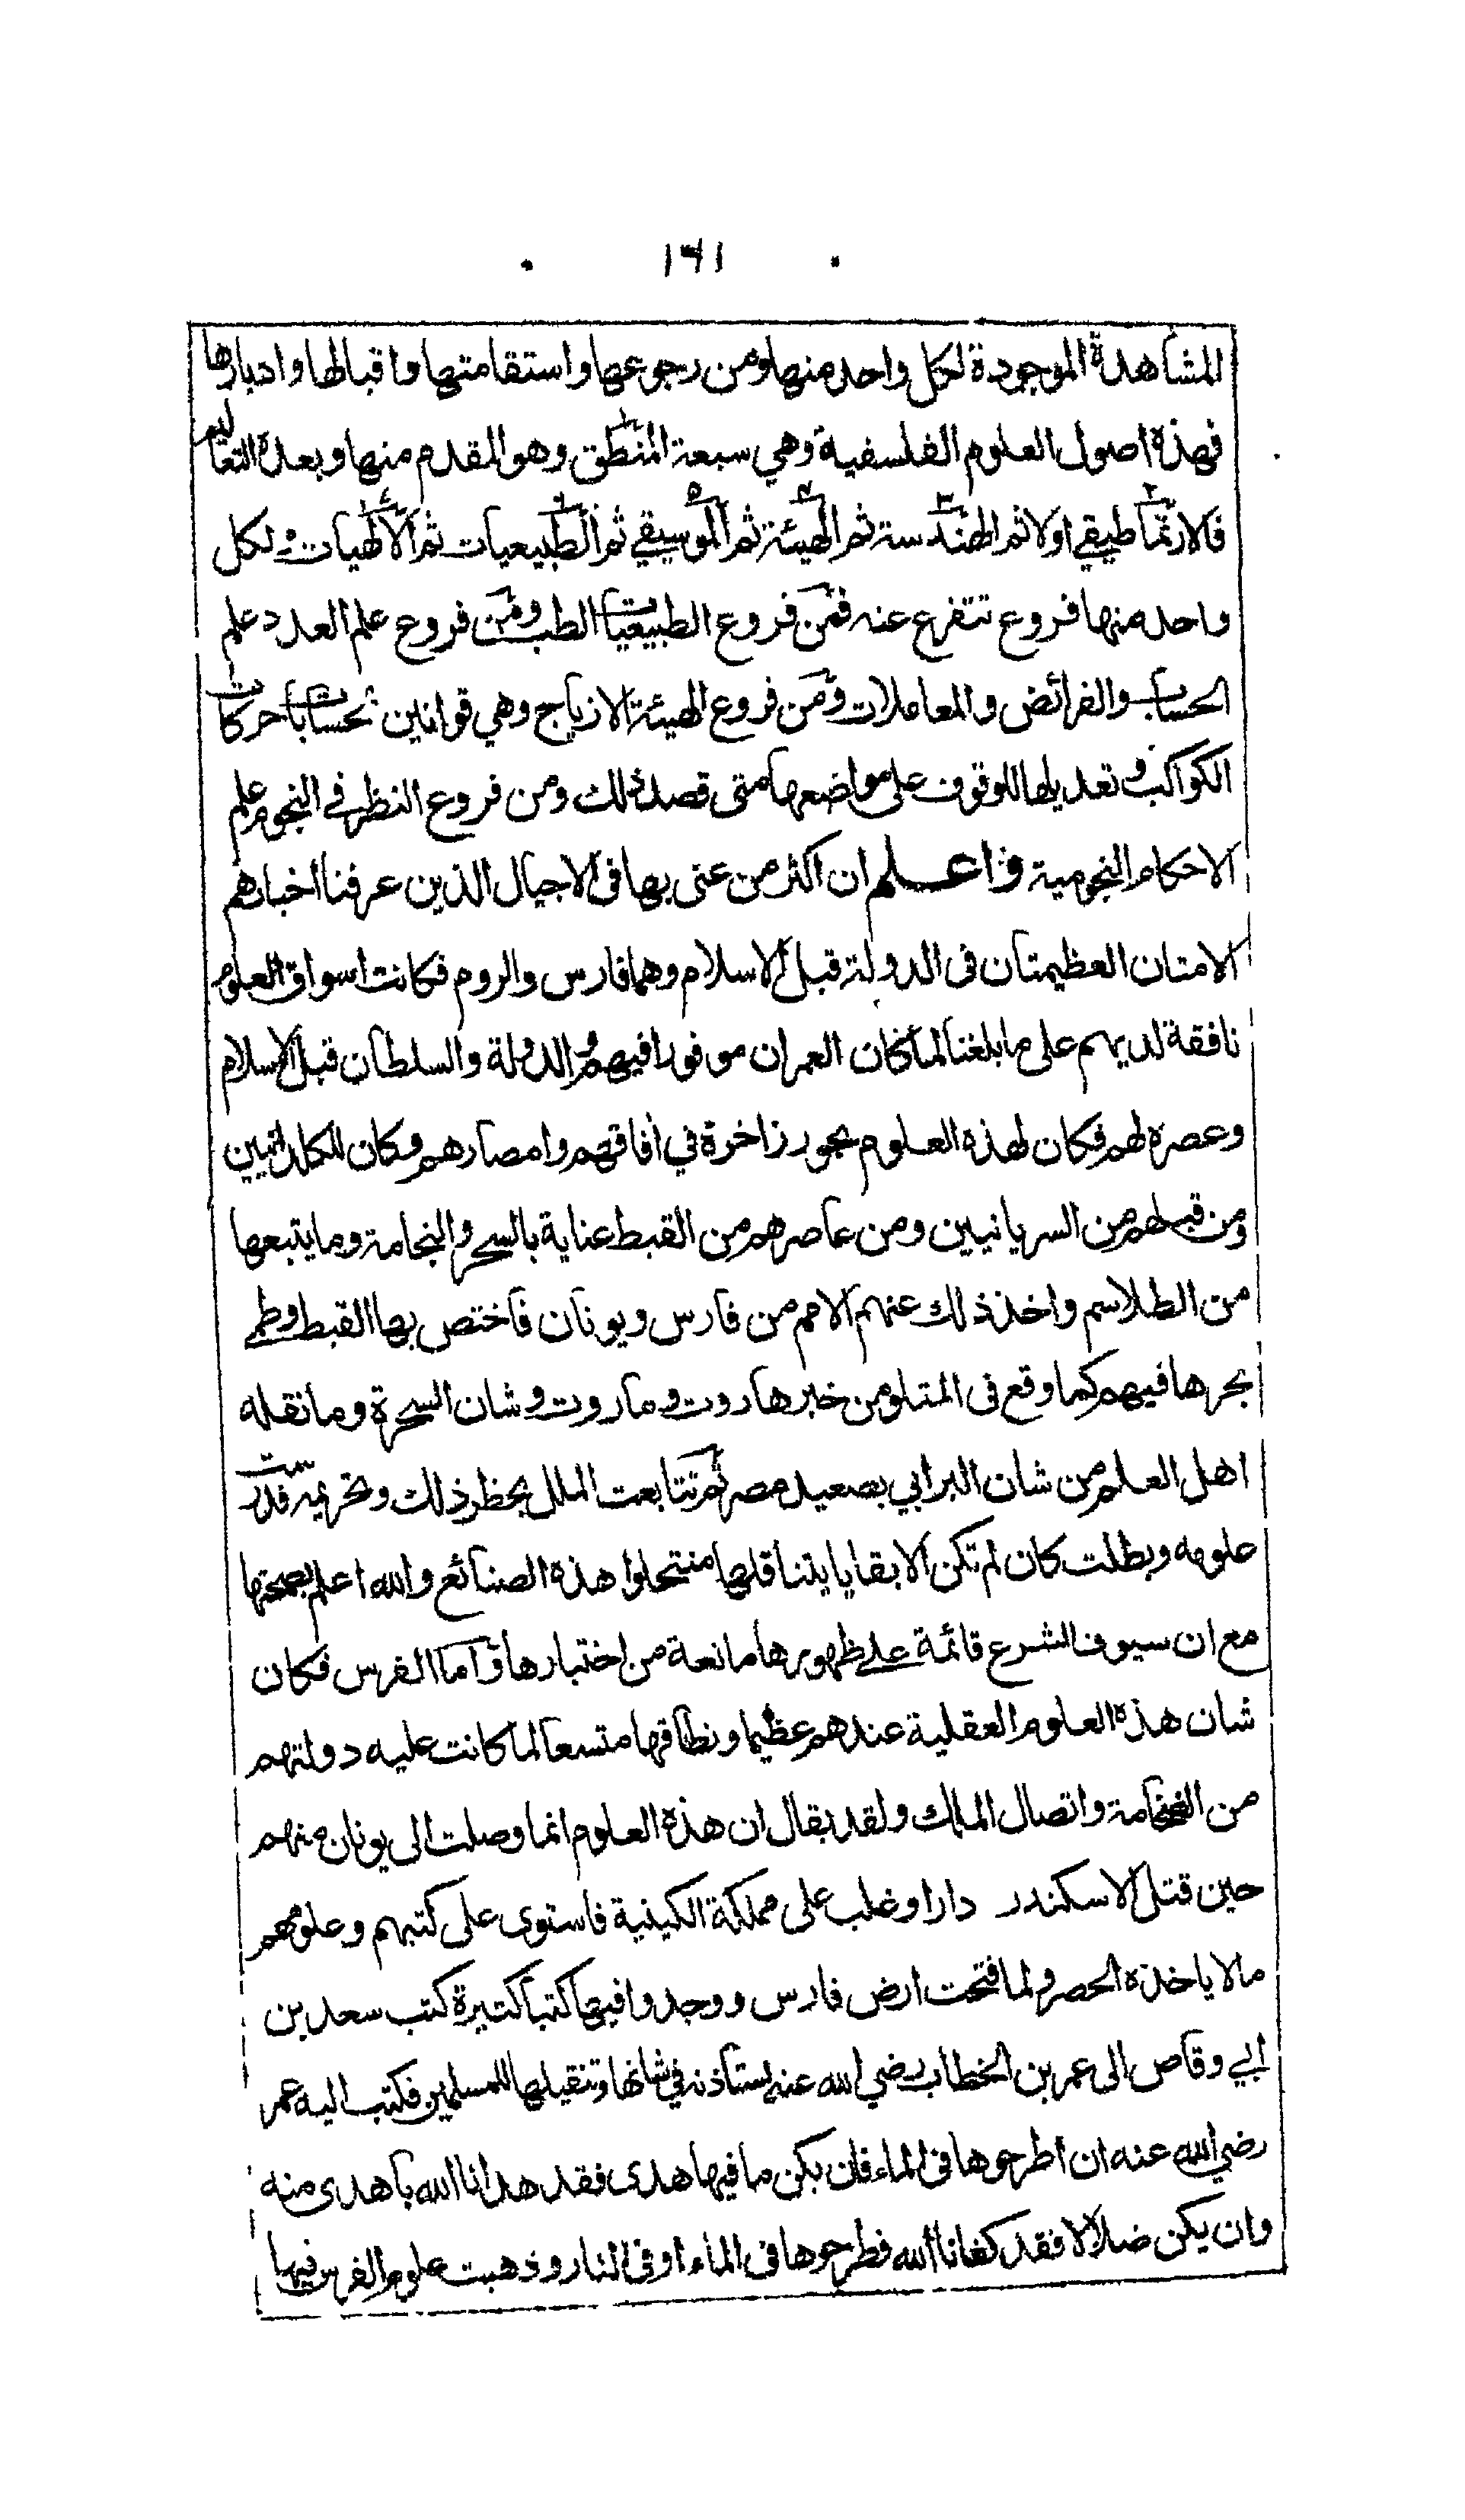 ١٤١
المشاهدة الموجودة لكل واحد منها ومن رجوعها واستقامتها واقبالها وادبارها
فهذه اصول العلوم الفلسفية وهي سبعة المنطق وهو المقدم منها وبعده التعاليم
فالارتماطيقي اولا ثم الهندسة ثم الهيئة ثم الموسيقي ثم الطبيعيات ثم الالهيات ولكل
واحد منها فروع تتفرع عنه فمن فروع الطبيعيات الطب ومن فروع علم العدد علم
الحساب والفرائض والمعاملات ومن فروع الهيئة الازياج وهي قوانين لحسابات حركات
الكواكب وتعديلها للوقوف على مواضعها متى قصد ذلك ومن فروع النظر في النجوم علم
الاحكام النجومية واعلم ان اكثر من عنى بها فى الاجيال الذين عرفنا اخبارهم
الامتان العظيمتان فى الدولة قبل الاسلام وهما فارس والروم فكانت اسواق العلوم
نافقة لديهم على ما بلغنا لما كان العمران موفورا فيهم والدولة والسلطان قبل الاسلام
وعصره لهم فكان لهذه العلوم بحور زاخرة في آفاقهم وامصارهم وكان للكلدانيين
ومن قبلهم من السريانيين ومن عاصرهم من القبط عناية بالسحر والنجامة وما يتبعها
من الطلاسم واخذ ذلك عنهم الامم من فارس ويونان فاختص بها القبط وطمى
بحرها فيهم كما وقع فى المتلو من خبر هاروت وماروت وشان السحرة وما نقله
اهل العلم من شان البرابي بصعيد مصر ثم تتابعت الملل بحظر ذلك وتحريمه فدرست
علومه وبطلت كان لم تكن الا بقايا يتناقلها منتحلوا هذه الصنائع والله اعلم بصحتها
مع ان سيوف الشرع قائمة على ظهورها مانعة من اختبارها واما الفرس فكان
شان هذه العلوم العقلية عندهم عظيما ونطاقها متسعا لما كانت عليه دولتهم
من الفخامة واتصال الملك ولقد يقال ان هذه العلوم انما وصلت الى يونان منهم
حين قتل الاسكندر دارا وغلب على مملكة الكينية فاستوى على كتبهم وعلومهم
مالا ياخذه الحصر ولما فتحت ارض فارس ووجدوا فيها كتبا كثيرة كتب سعد بن
ابي وقاص الى عمر بن الخطاب رضي الله عنه يستأذنه في شانها وتنقيلها للمسلمين فكتب اليه عمر
رضي الله عنه ان اطرحوها فى الماء فان يكن ما فيها هدى فقد هدانا الله بأهدى منه
وان يكن ضلالا فقد كفانا الله فطرحوها فى الماء او فى النار وذهبت علوم الفرس فيها